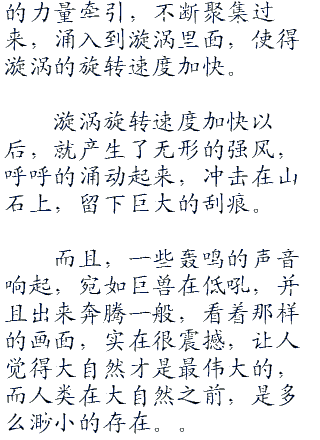 的力量牵引，不断聚集过
来，涌入到漩涡里面，使得
漩涡的旋转速度加快。
漩涡旋转速度加快以
后，就产生了无形的强风，
呼呼的涌动起来，冲击在山
石上，留下巨大的刮痕。
而且，一些轰鸣的声音
响起，宛如巨兽在低吼，并
且出来奔腾一般，看着那样
的画面，实在很震撼，让人
觉得大自然才是最伟大的，
而人类在大自然之前，是多
么渺小的存在。。